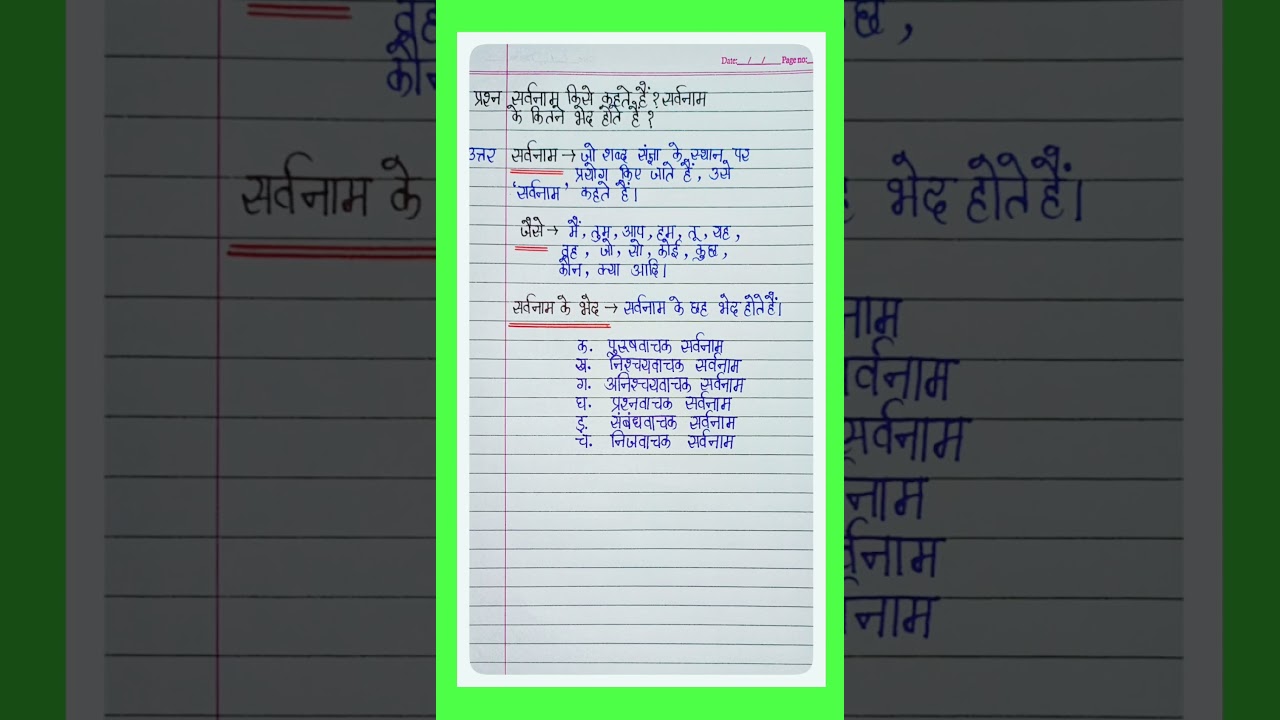 Date:__/__/__ Page no:__
प्रश्न सर्वनाम किसे कहते हैं? सर्वनाम
के कितने भेद होते हैं?
उत्तर सर्वनाम → जो शब्द संज्ञा के स्थान पर
प्रयोग किए जाते हैं, उसे
'सर्वनाम' कहते हैं।
जैसे → मैं, तुम, आप, हम, तू, यह,
वह, जो, सो, कोई, कुछ,
कौन, क्या आदि।
सर्वनाम के भेद → सर्वनाम के छह भेद होते हैं।
क. पुरुषवाचक सर्वनाम
ख. निश्चयवाचक सर्वनाम
ग. अनिश्चयवाचक सर्वनाम
घ. प्रश्नवाचक सर्वनाम
ङ. संबंधवाचक सर्वनाम
च. निजवाचक सर्वनाम